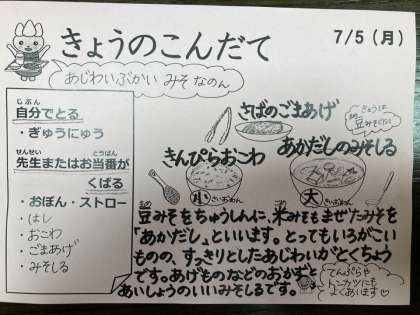 きょうのこんだて
7/5（月）
あじわいぶかい みそ なのん
自分でとる
・ぎゅうにゅう
先生またはお当番が
くばる
・おぼん・ストロー
・はし
・おこわ
・ごまあげ
・みそしる
さばのごまあげ
きょうは
豆みそだよ
きんぴらおこわ
あかだしのみそしる
小 さいおわん
大 きいおわん
豆みそをちゅうしんに、米みそもまぜたみそを
「あかだし」といいます。とってもいろがこい
ものの、すっきりとしたあじわいがとくちょう
です。あげものなどのおかずと
あいしょうのいいみそしるです。
てんぷらや
トンカツにも
よくあいます♡